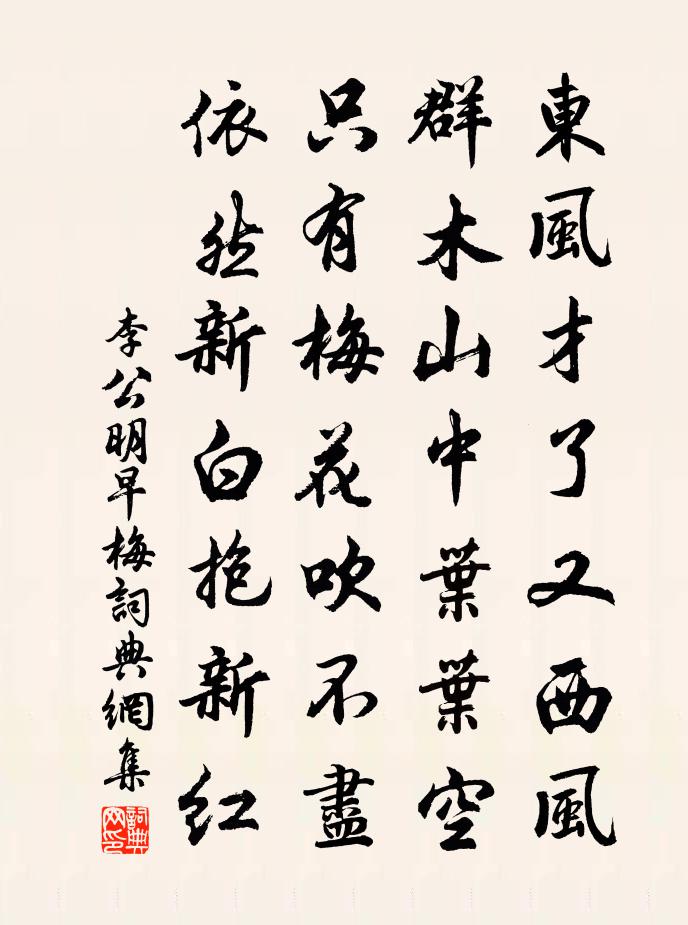 東風才了又西風
群木山中葉葉空
只有梅花吹不盡
依然新白抱新红
李公明早梅詞典網集
詞典网印